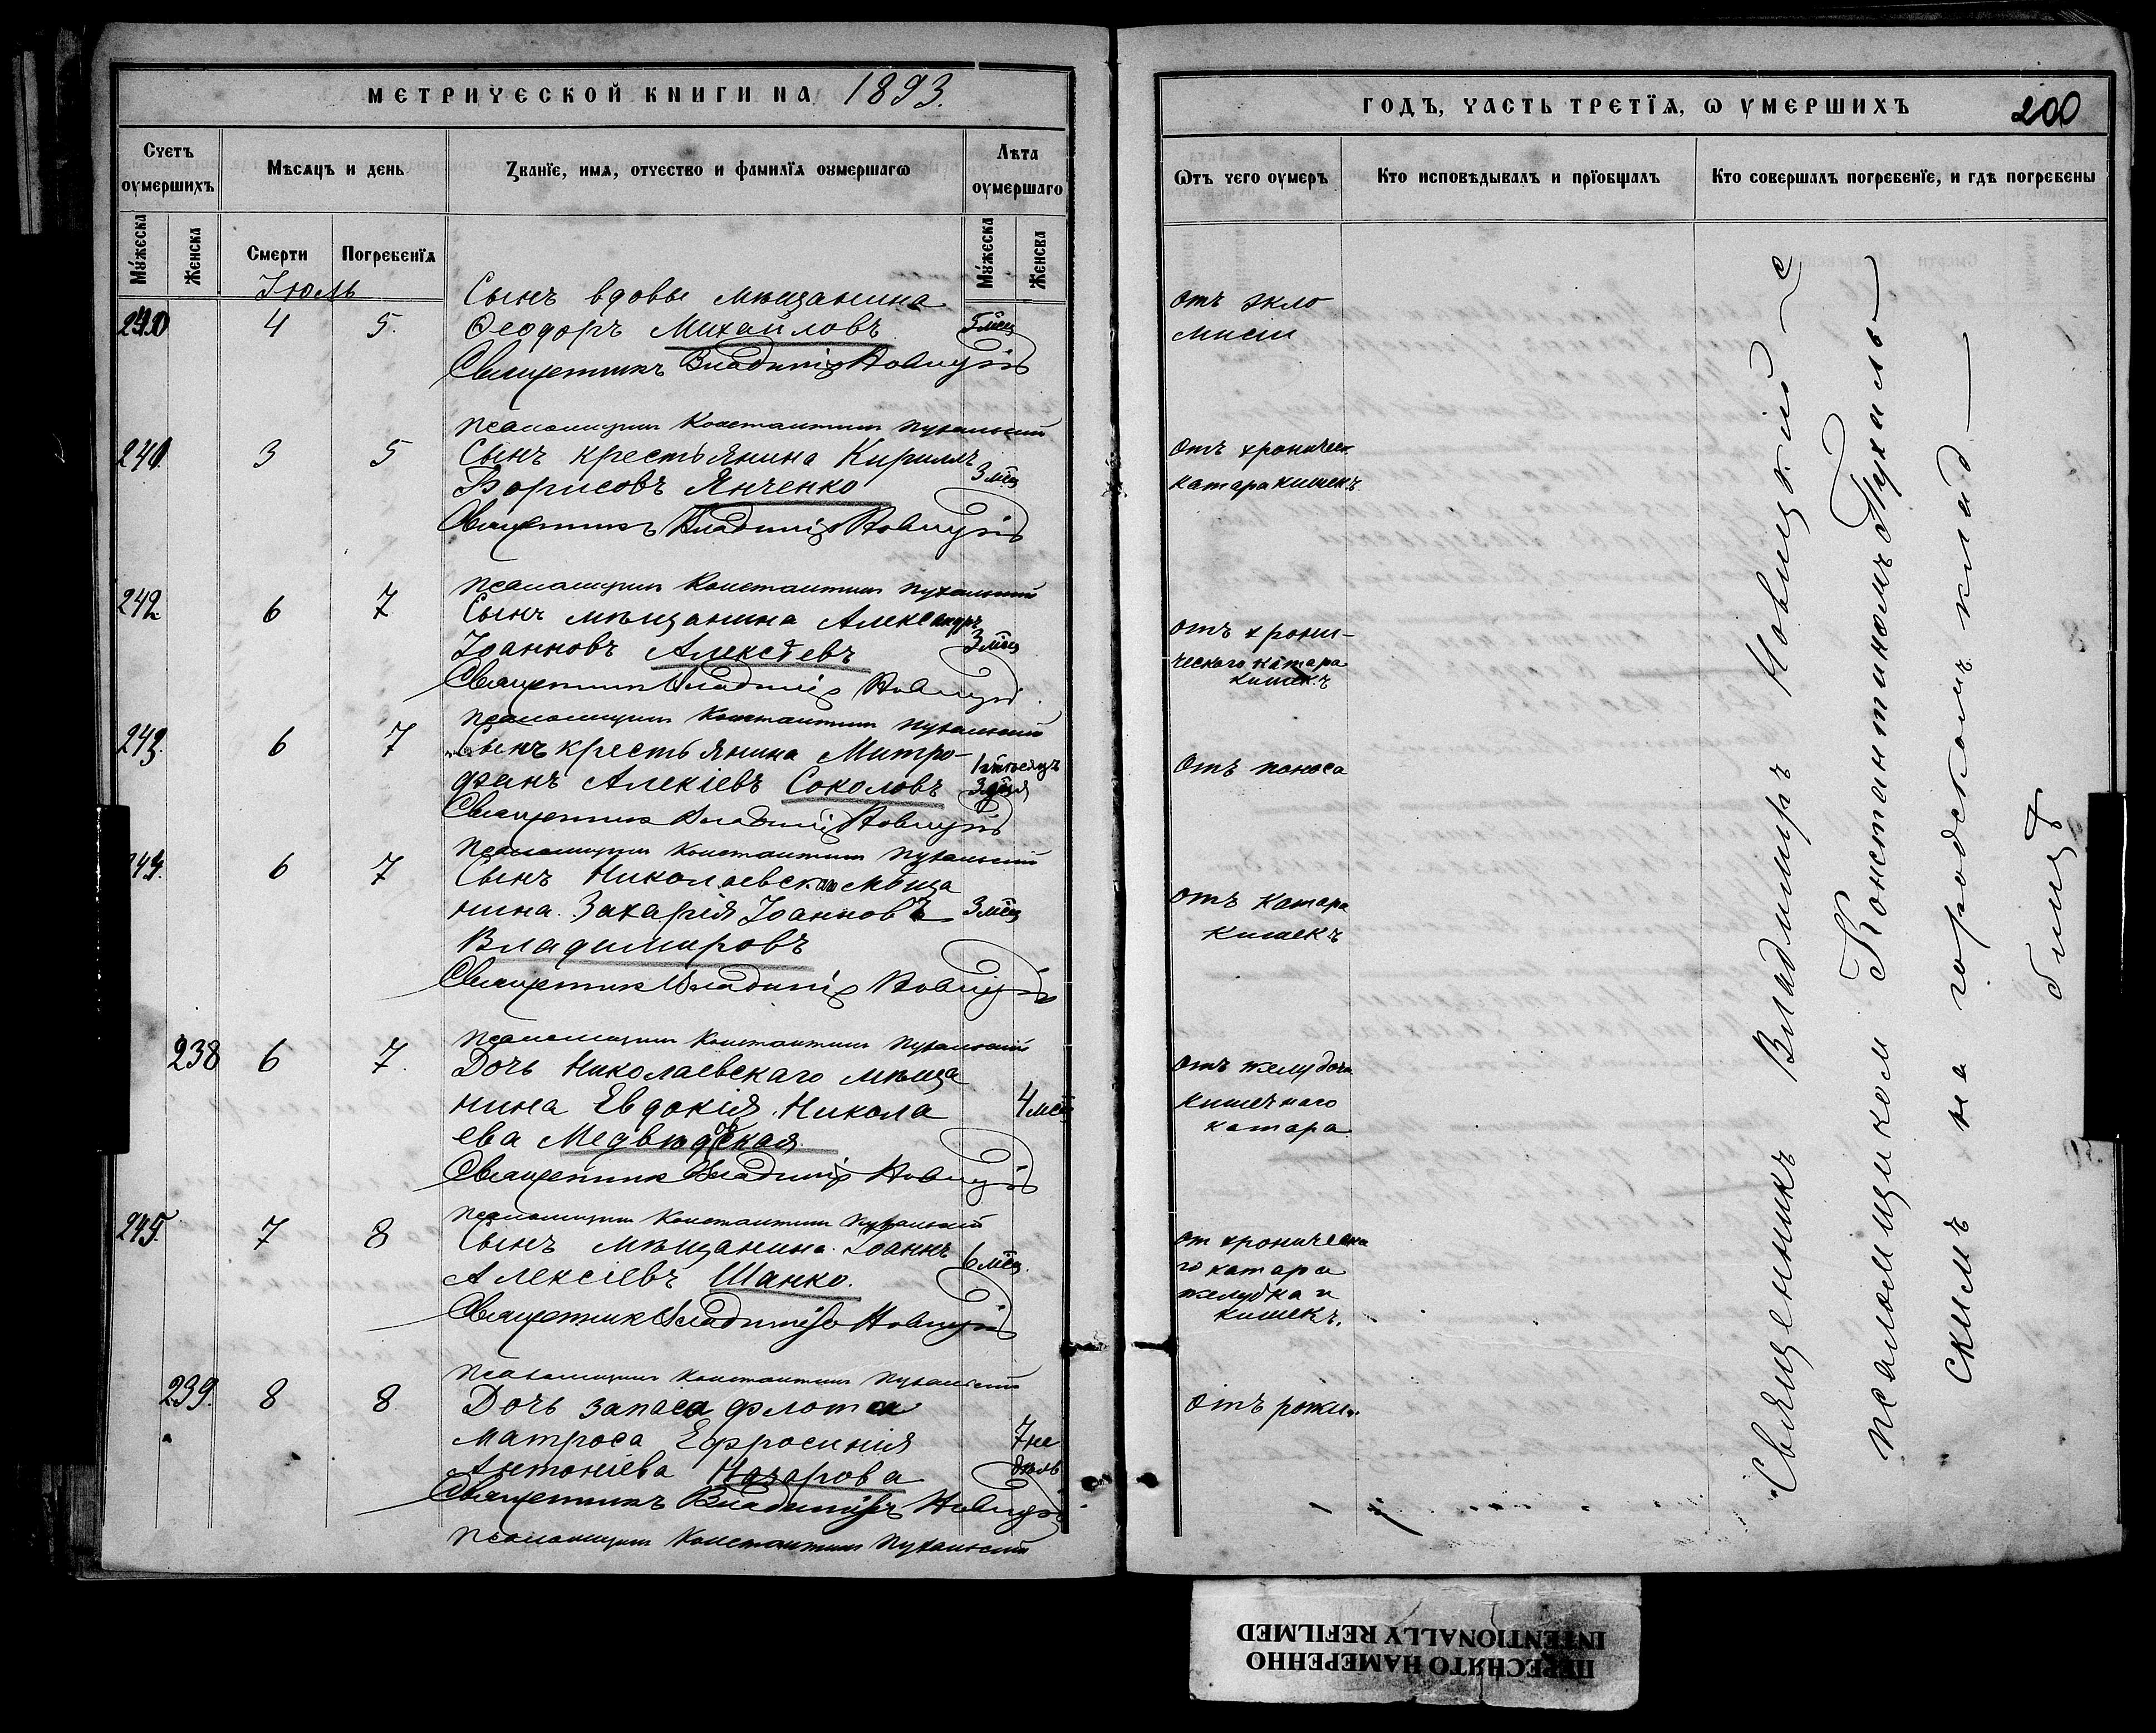 МЕТРИЧЕСКОЙ КНИГИ НА 1893.
Счетъ оумершихъ
Мѣсяцъ и день
Званїе, имя, отчество и фамилїя оумершагѡ
Лѣта оумершаго
Мужеска
Женска
Смерти
Погребенїя
Мужеска
Женска
Іюль
240 4 5.
Сынъ вдовы мѣщанина
Ѳеодоръ Михайловъ 5 мѣц
Священникъ Владиміръ Новицкій
Псаломщикъ Константинъ Пухальскій
241. 3 5
Сынъ крестьянина Кириллъ
Борисовъ Янченко 3 мѣц
Священникъ Владиміръ Новицкій
Псаломщикъ Константинъ Пухальскій
242 6 7
Сынъ мѣщанина Александръ
Іоанновъ Алексѣевъ 3 мѣц
Священникъ Владиміръ Новицкій
Псаломщикъ Константинъ Пухальскій
243. 6 7
Сынъ крестьянина Митро-
фанъ Алексіевъ Соколовъ 1 мѣсяцъ 3 дня
Священникъ Владиміръ Новицкій
Псаломщикъ Константинъ Пухальскій
244. 6 7
Сынъ Николаевскаго мѣща
нина Захарія Іоанновъ 3 мѣц
Владимировъ
Священникъ Владиміръ Новицкій
Псаломщикъ Константинъ Пухальскій
238 6 7.
Дочь Николаевскаго мѣща
нина Евдокія Никола 4 мѣц
ева Медвѣдовская
Священникъ Владиміръ Новицкій
Псаломщикъ Константинъ Пухальскій
245. 7 8
Сынъ мѣщанина Іоаннъ
Алексіевъ Шанко. 6 мѣц.
Священникъ Владиміръ Новицкій
Псаломщикъ Константинъ Пухальскій
239. 8 8
Дочь запаса флота
матроса Ефросинія 7 не
Антоніева Назарова дѣль
Священникъ Владиміръ Новицкій
Псаломщикъ Константинъ Пухальскій
ГОДЪ, ЧАСТЬ ТРЕТЇЯ, Ѡ УМЕРШИХЪ 200
Ѡтъ чего оумеръ
Кто исповѣдывалъ и прїобщалъ
Кто совершалъ погребенїе, и гдѣ погребены
отъ экло
мпсіи
отъ хроническ.
катара кишекъ
отъ хрони-
ческого катара
кишекъ
Отъ поноса
отъ катара
кишекъ
отъ желудочн
кишечнаго
катара
от хроническа
го катара
желудка и
кишекъ.
отъ рожи.
Священникъ Владимиръ Новицкій с
псаломщиком Константиномъ Пухаль
скимъ на городскомъ клад
бищѣ
ПЕРЕСНЯТО НАМЕРЕННО
INTENTIONALLY REFILMED